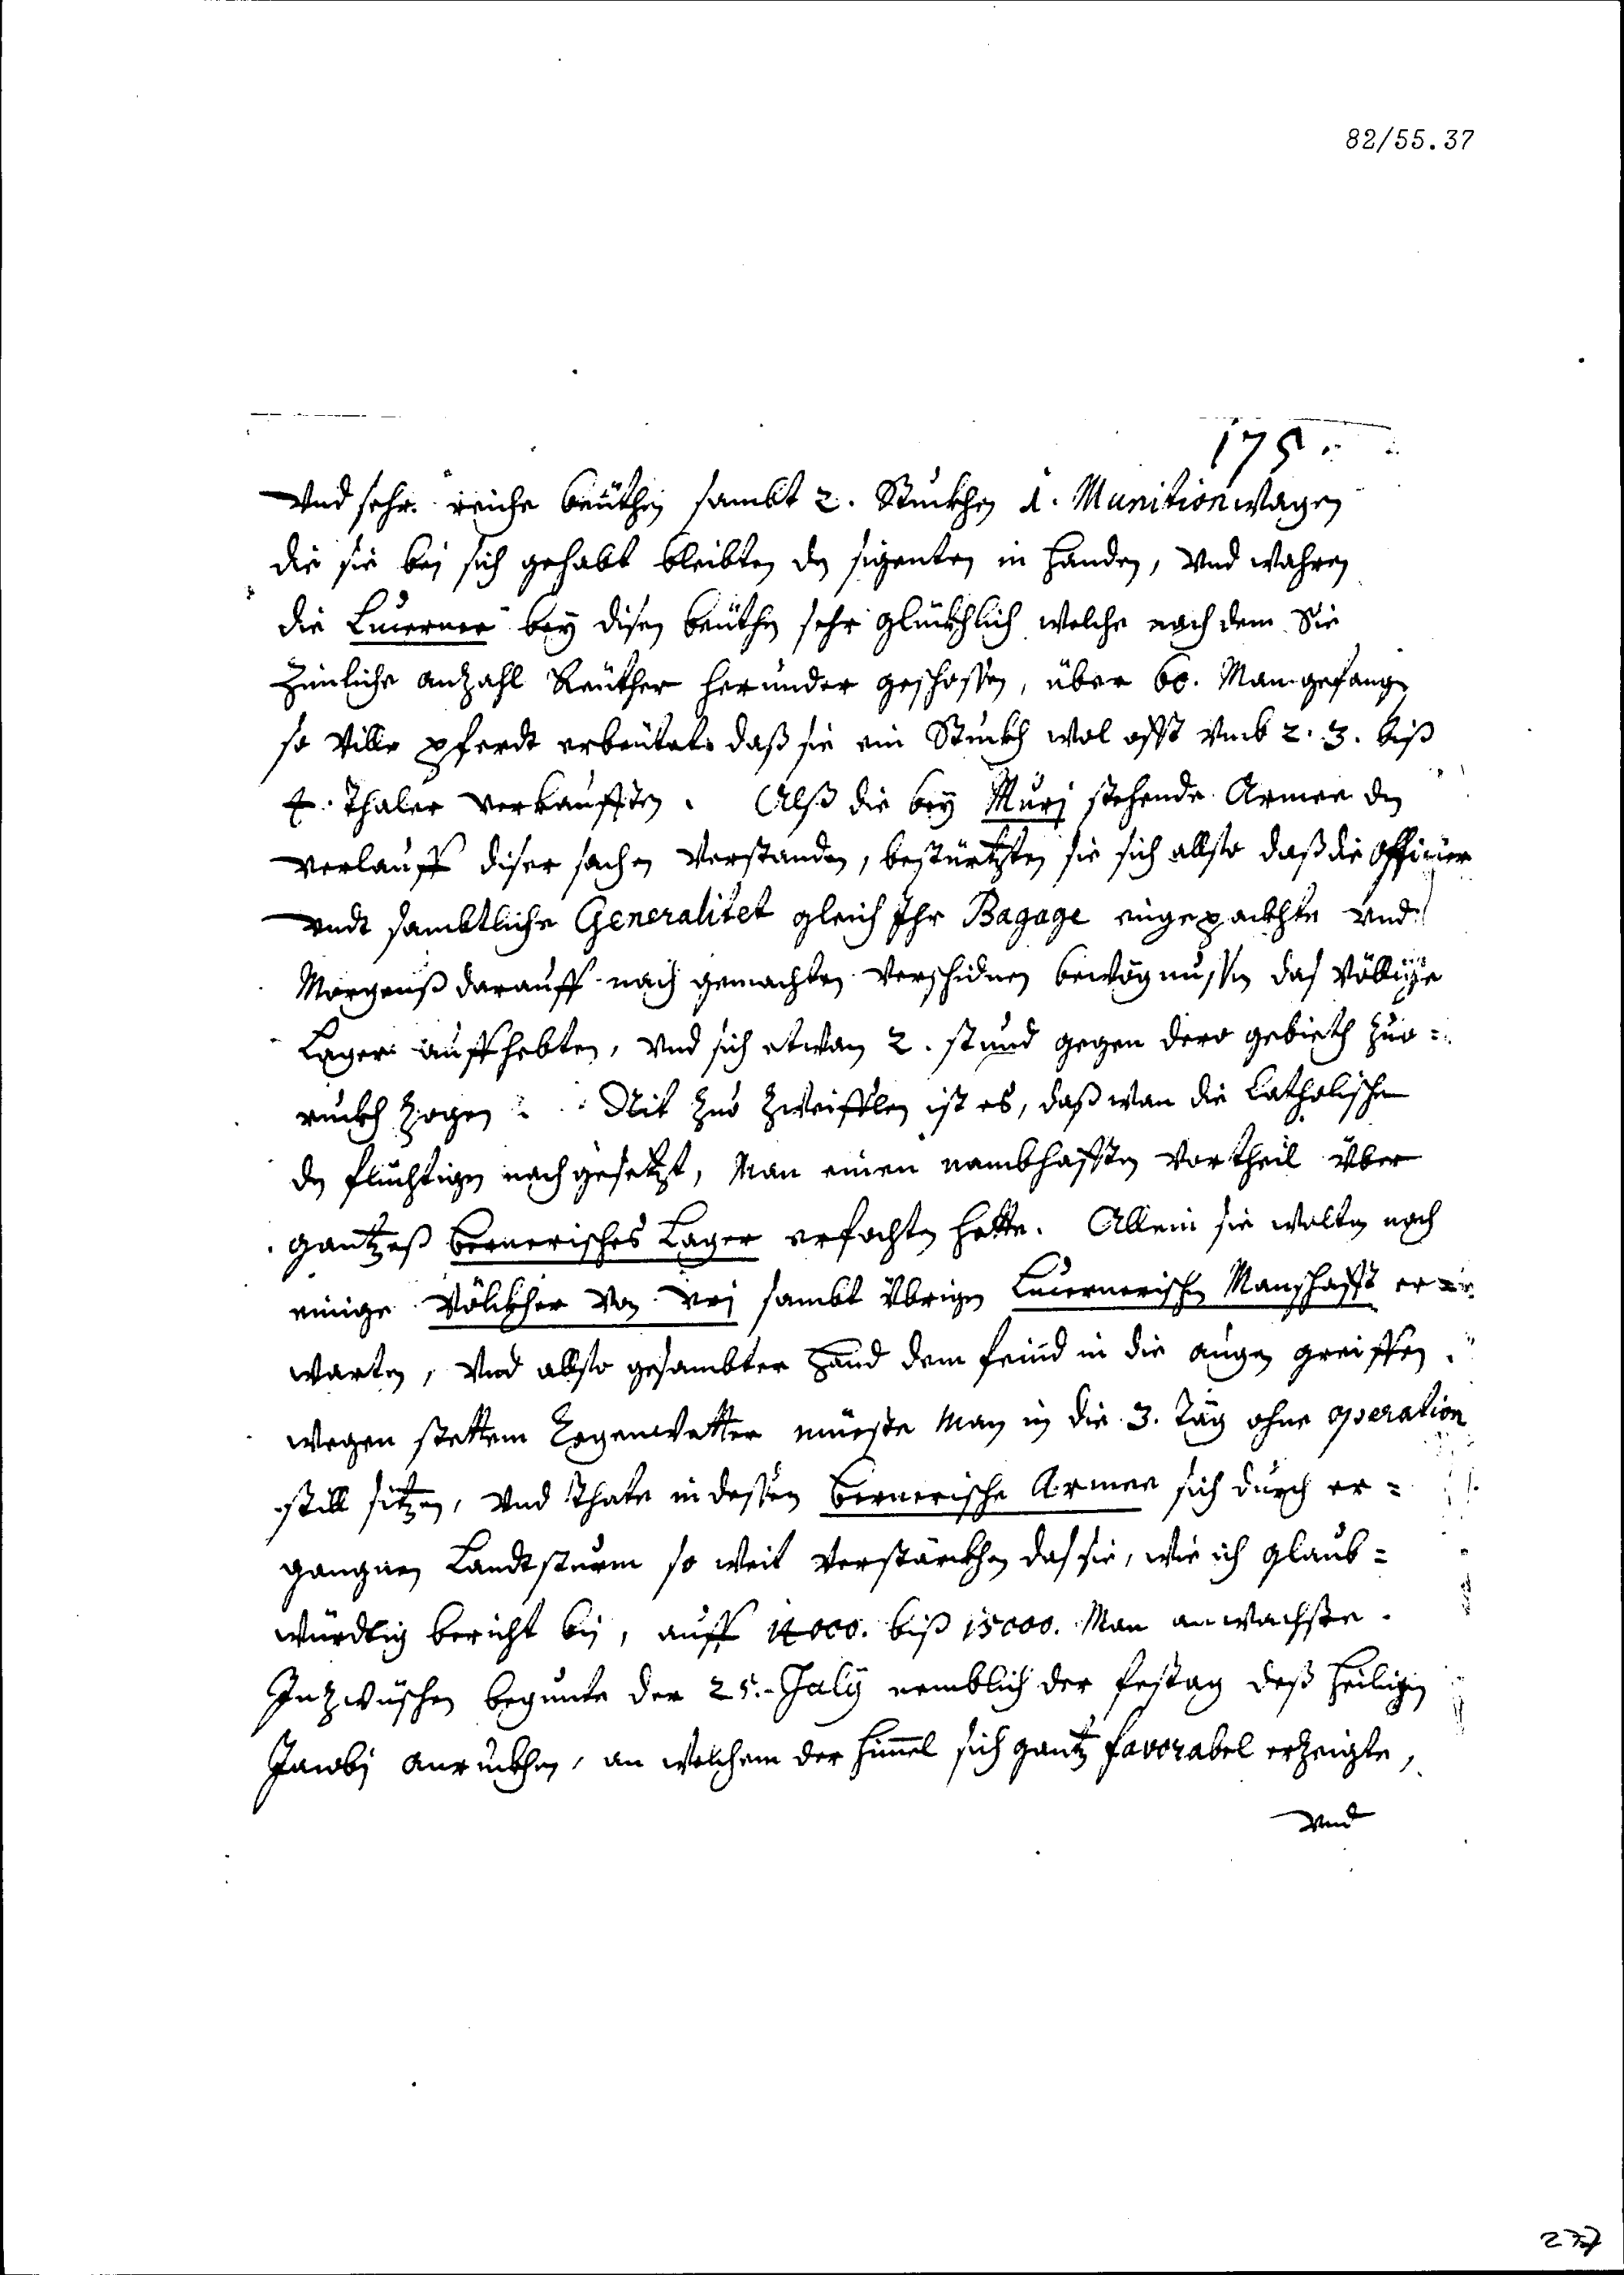 82/55.37
175.
Vnd sehr reiche beüthen sambt 2. Stuckhen 1. Munition wagen
die sie bej sich gehabt bleibten den sigenten in handen, vnd wahren
die Lucerner bey disen beüthen sehr glückhlich welche nach dem Sie
Zimliche anzahl Reüther herunder geschossen, über 60. Man gefangen
so ville pferdt erbeütet daß sie ein Stuckh wol offt vmb 2. 3. biß
4. Thaler verkaufften. Alß die bey Murj stehende Armee den
verlauff diser sachen verstanden, bestürtzten sie sich allso daß die Officier
vndt sambtliche Generalitet gleich Ihr Bagage eingepackhte vnd
Morgenß darauff nach gemachten verschidnen bewögnussen das völlige
Lager auffhebten, vnd sich etwan 2. stund gegen dero gebieth zuo=
ruckh zogen. Nit zuo zweifflen ist es, daß wan die Catholische
den fluchtigen nachgesetzt, Man einen nambhafften vortheil über
gantzeß bernerisches Lager erfochten hette. Allein sie wolten noch
einige völckher von Vrj sambt übrigen Lucernerischen Manschafft er=
warten, vnd allso gesambter hand dem feind in die augen greiffen.
wegen stettem Regenwetter müeste Man in die 3. Tag ohne operation
still sitzen, vnd thate indessen bernerische Armee sich durch er=
gangnen Landtsturm so weit verstärckhen das sie, wie ich glaub=
würdtig bericht bin, auff 14000. biß 15000. Man anwachste.
Inzwüschen begunte der 25. July nemblich der festag deß heiligen
Jacobj anruckhen, an welchem der himmel sich gantz favorabel erzeigte,
vnd